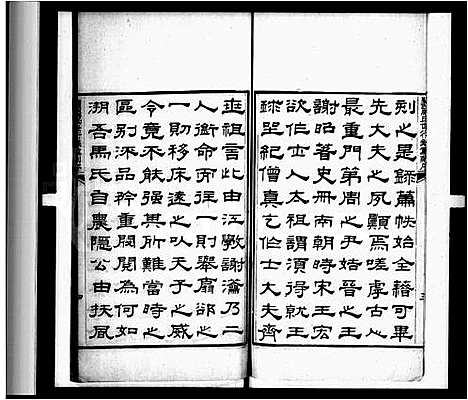 刻之是錄蕭帙始全緒可畢
先大夫之夙願焉嗟虖古之
最重門第周之尹姞晉之王
謝昭著史冊南朝時宋王宏
欲作士人太祖謂須得就王
球坐紀僧真乞作士大夫齊
世祖言此由江斆謝瀹乃二
人銜命而往一則舉扇卻之
一則移床遠之以天子之威
令竟不能強其所難當時之
區別流品矜重閥閱為何如
溯吾馬氏自農隱公由扶風